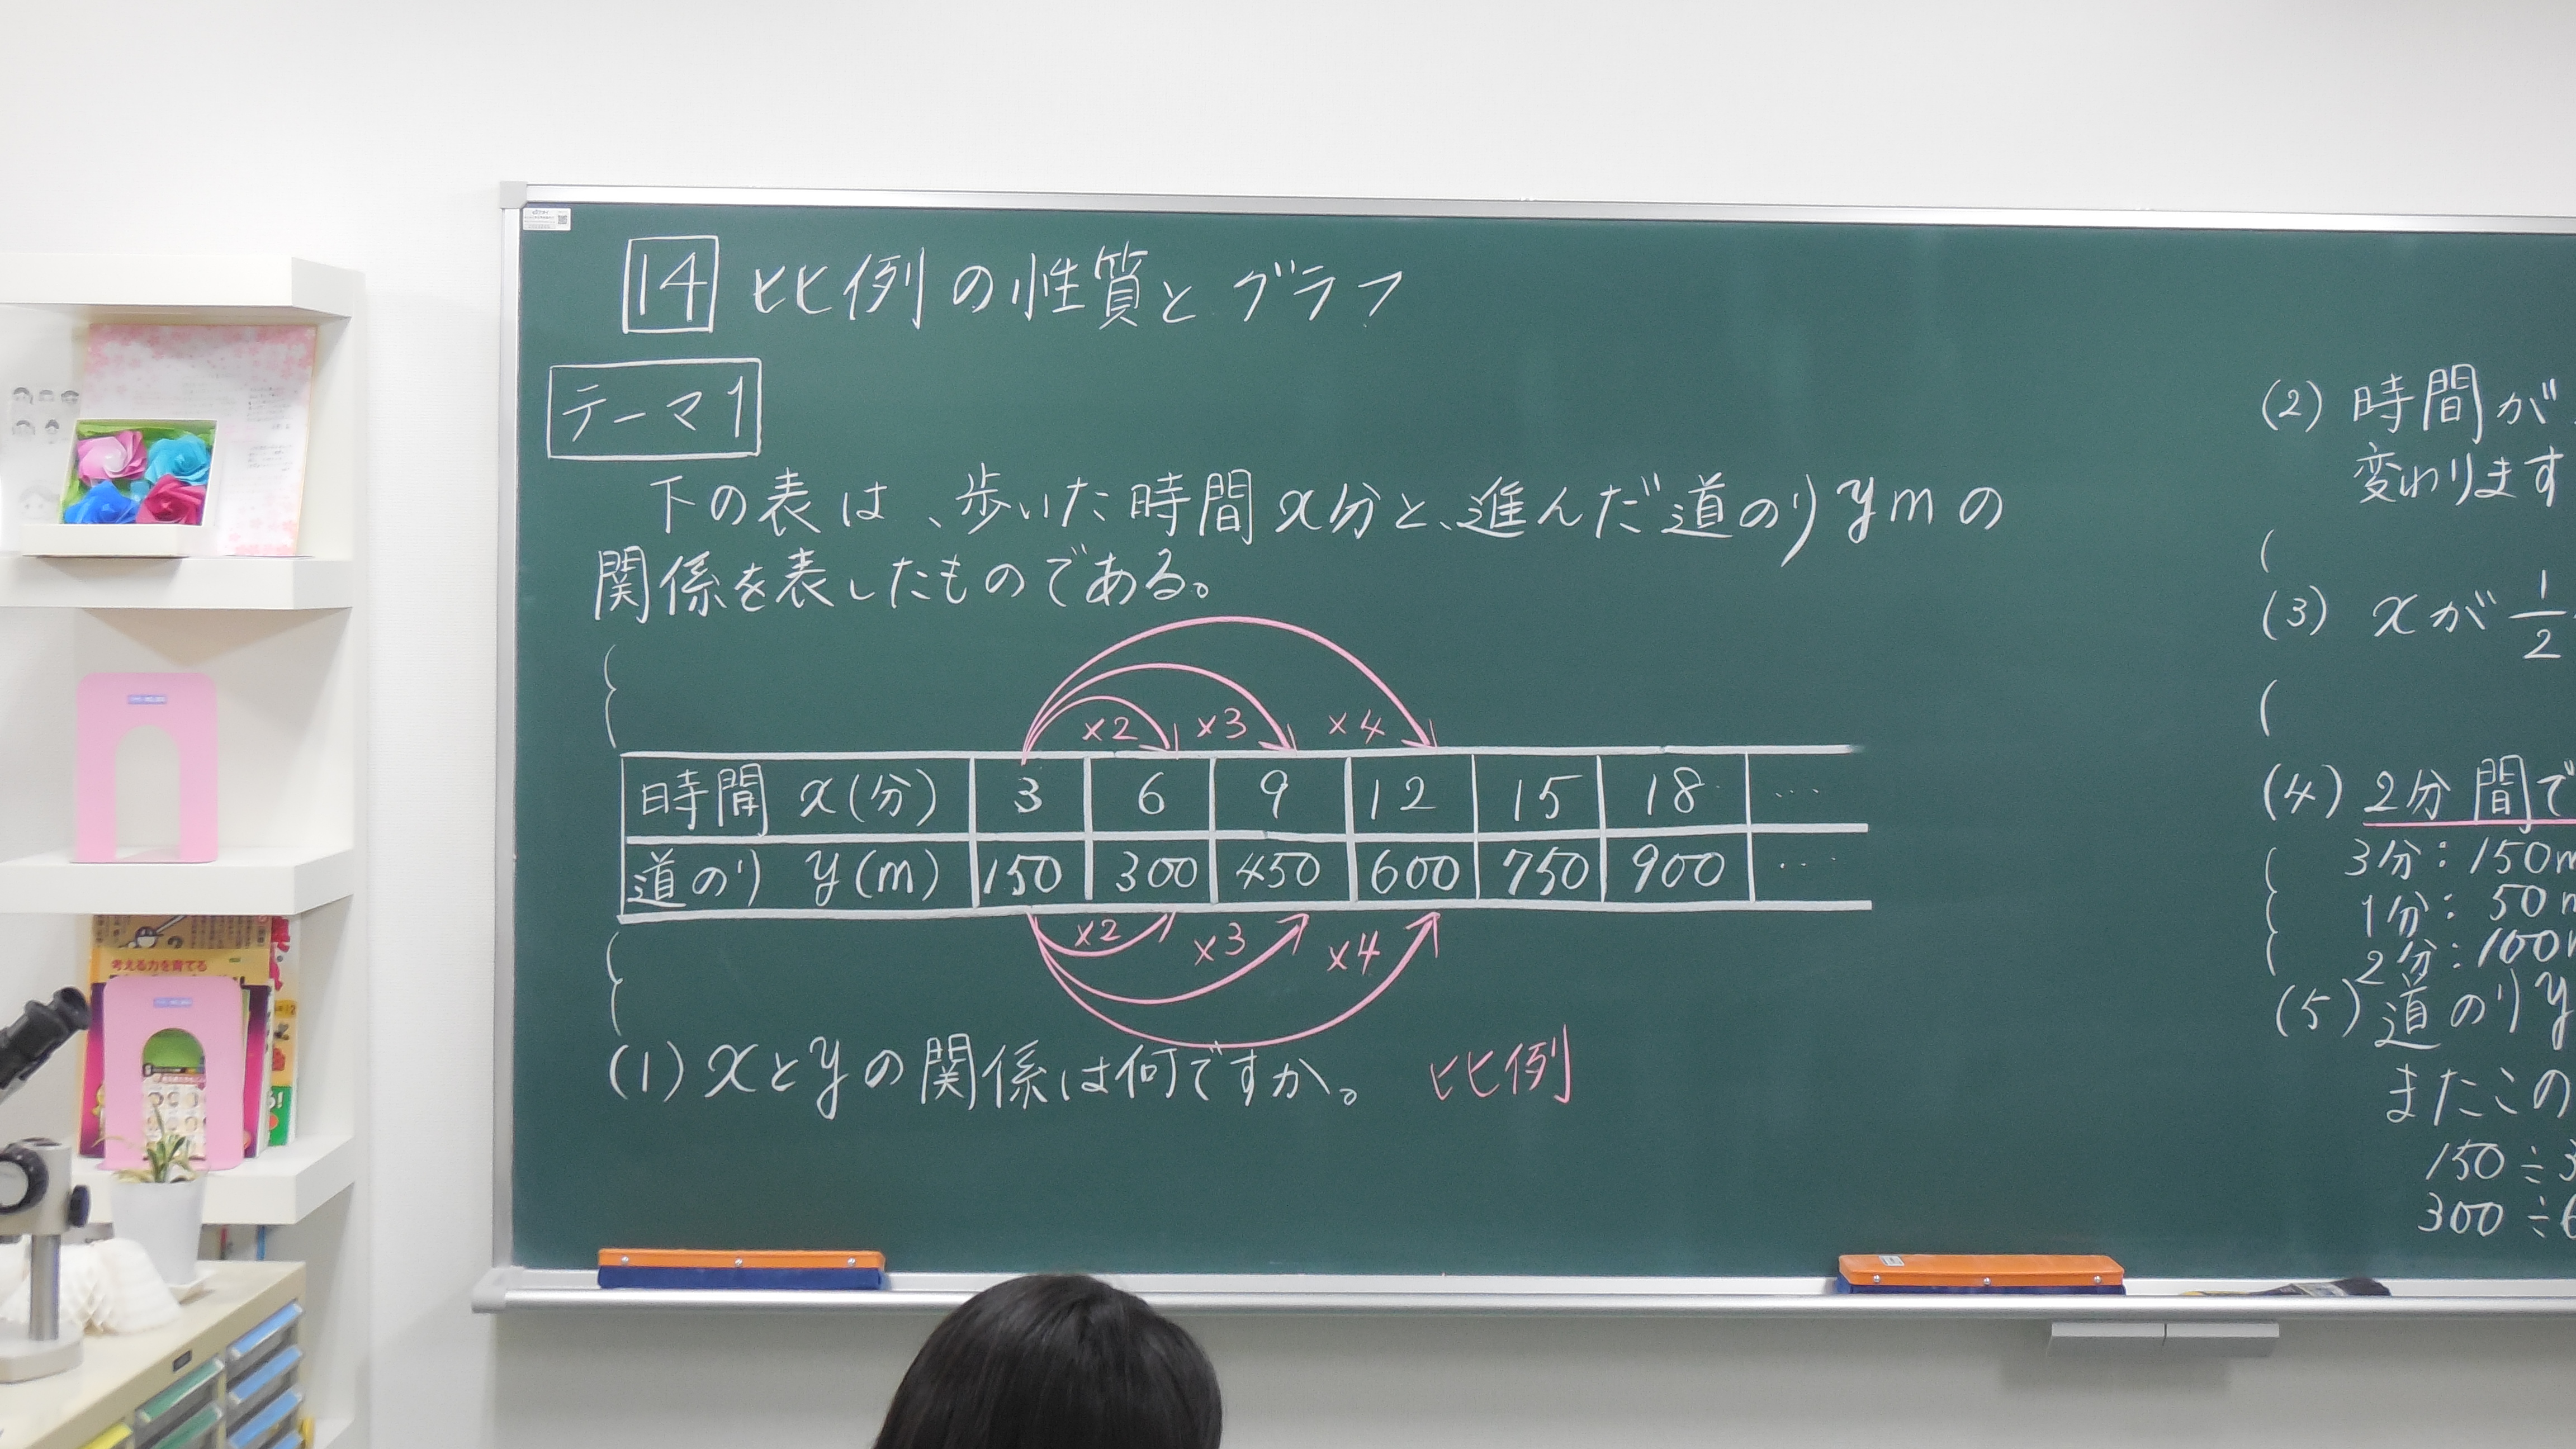 14 比例の性質とグラフ
テーマ1
下の表は、歩いた時間x分と、進んだ道のりymの
関係を表したものである。
×2 ×3 ×4
時間 x(分) 3 6 9 12 15 18 …
道のり y(m) 150 300 450 600 750 900 …
×2 ×3 ×4
(1) xとyの関係は何ですか。 比例
(2) 時間が
変わります
(3) xが 1/2
(4) 2分間で
3分:150m
1分:50m
2分:100m
(5) 道のりy
またこの
150÷3
300÷6
考える力を育てる